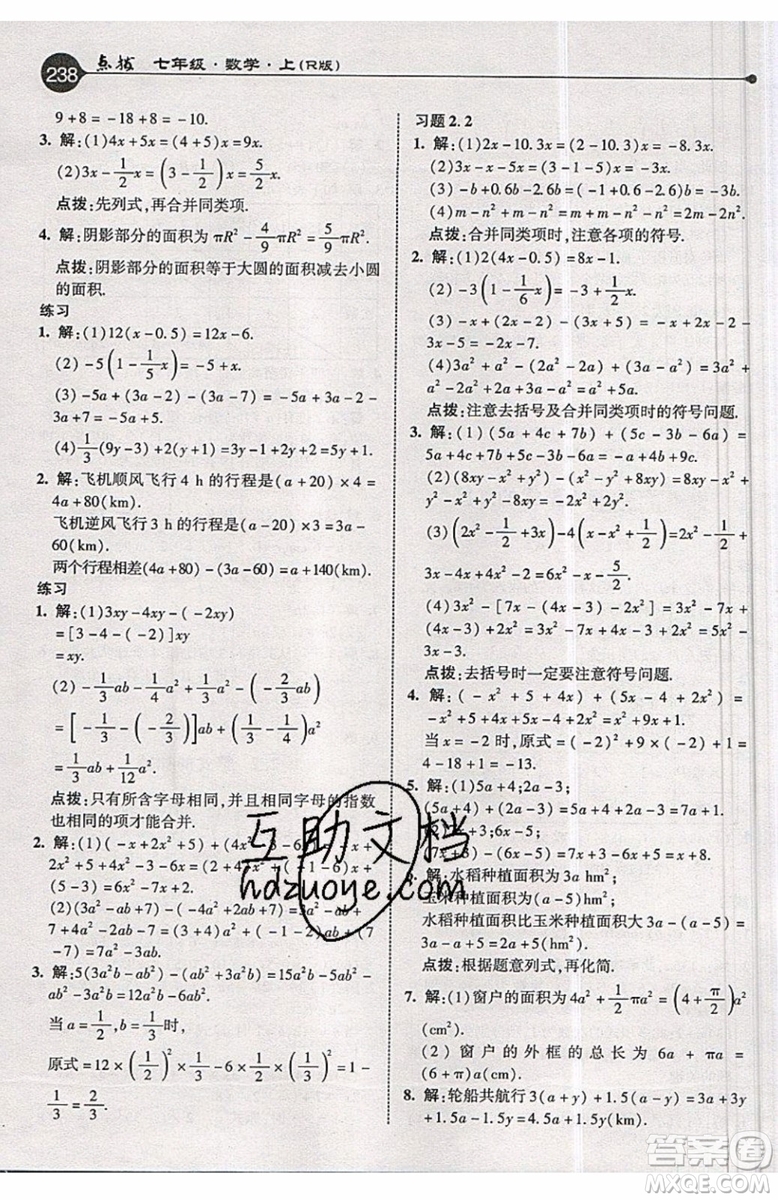 238 点拨 七年级·数学·上(R版)
9+8=-18+8=-10.
3. 解:(1)4x+5x=(4+5)x=9x.
(2)3x-1/2x=(3-1/2)x=5/2x.
点拨:先列式,再合并同类项.
4. 解:阴影部分的面积为πR²-4/9πR²=5/9πR².
点拨:阴影部分的面积等于大圆的面积减去小圆
的面积.
练习
1. 解:(1)12(x-0.5)=12x-6.
(2)-5(1-1/5x)=-5+x.
(3)-5a+(3a-2)-(3a-7)=-5a+3a-2-
3a+7=-5a+5.
(4)1/3(9y-3)+2(y+1)=3y-1+2y+2=5y+1.
2. 解:飞机顺风飞行4 h的行程是(a+20)×4=
4a+80(km).
飞机逆风飞行3 h的行程是(a-20)×3=3a-
60(km).
两个行程相差(4a+80)-(3a-60)=a+140(km).
练习
1. 解:(1)3xy-4xy-(-2xy)
=[3-4-(-2)]xy
=xy.
(2)-1/3ab-1/4a²+1/3a²-(-2/3ab)
=[-1/3-(-2/3)]ab+(1/3-1/4)a²
=1/3ab+1/12a².
点拨:只有所含字母相同,并且相同字母的指数
也相同的项才能合并.
2. 解:(1)(-x+2x²+5)+(4x²
2x²+5+4x²-3-6x=(2x²
(5-3)=6x²-7x+2.
(2)(3a²-ab+7)-(-4a²
7+4a²-2ab-7=(3a²+4a²)+(-ab-2ab)+(7
-7)=7a²-3ab.
3. 解:5(3a²b-ab²)-(ab²+3a²b)=15a²b-5ab²-
ab²-3a²b=12a²b-6ab².
当a=1/2,b=1/3时,
原式=12×(1/2)²×1/3-6×1/2×(1/3)²=12×1/4×
1/3-6×1/2×1/9=1-
1/3=2/3.
习题2.2
1. 解:(1)2x-10.3x=(2-10.3)x=-8.3x.
(2)3x-x-5x=(3-1-5)x=-3x.
(3)-b+0.6b-2.6b=(-1+0.6-2.6)b=-3b.
(4)m-n²+m-n²=(m+m)+(-n²-n²)=2m-2n².
点拨:合并同类项时,注意各项的符号.
2. 解:(1)2(4x-0.5)=8x-1.
(2)-3(1-1/6x)=-3+1/2x.
(3)-x+(2x-2)-(3x+5)=-x+2x-2-
3x-5=-2x-7.
(4)3a²+a²-(2a²-2a)+(3a-a²)=3a²+
a²-2a²+2a+3a-a²=a²+5a.
点拨:注意去括号及合并同类项时的符号问题.
3. 解:(1)(5a+4c+7b)+(5c-3b-6a)=
5a+4c+7b+5c-3b-6a=-a+4b+9c.
(2)(8xy-x²+y²)-(x²-y²+8xy)=8xy-x²+
y²-x²+y²-8xy=-2x²+2y².
(3)(2x²-1/2+3x)-4(x-x²+1/2)=2x²-1/2+
3x-4x+4x²-2=6x²-x-5/2.
(4)3x²-[7x-(4x-3)-2x²]=3x²-7x+
(4x-3)+2x²=3x²-7x+4x-3+2x²=5x²-
3x-3.
点拨:去括号时一定要注意符号问题.
4. 解:(-x²+5+4x)+(5x-4+2x²)=
-x²+5+4x+5x-4+2x²=x²+9x+1.
当x=-2时,原式=(-2)²+9×(-2)+1=
4-18+1=-13.
5. 解:(1)5a+4;2a+3;
(5a+4)+(2a+3)=7a+7.
9x+3;6x-5x;
(7x+3)-(6x-5)=x+8.
6. 解:水稻种植面积为3a
玉米种植面积为(a-5)hm²,
水稻种植面积比玉米种植面积大3a-(a-5)=
2a+5(hm²).
点拨:根据题意列式,再化简.
7. 解:(1)窗户的面积为4a²+1/2πa²=(4+π/2)a²
(cm²).
(2)窗户的外框的总长为6a+πa=
(6+π)a(cm).
8. 解:轮船共航行3(a+y)+1.5(a-y)=3a+3y
+1.5a-1.5y=4.5a+1.5y(km).
互助文档
hdzuoye.com
答案圈
MXQE.COM